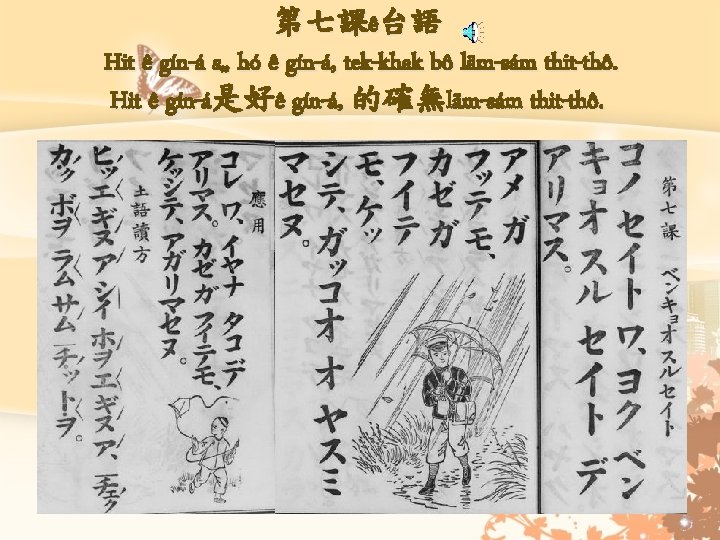 第七課ê台語
Hit ê gín-á sī hó ê gín-á, tek-khak bô lām-sám thit-thô.
Hit ê gín-á是好ê gín-á, 的確無lām-sám thit-thô.
第七課 ベンキョオスルセイト
コノ セイト ワ、ヨク ベン
キョオ スル セイト デ
アリマス。
アメ ガ
フッテ モ、
カゼ ガ
フイテ
モ、ケッ
シテ、ガッコオ オ ヤスミ
マセヌ。
應用
コレ ワ、イヤナ タコ デ
アリマス。カゼ ガ フイテモ、
ケッシテ、アガリマセヌ。
土語讀方